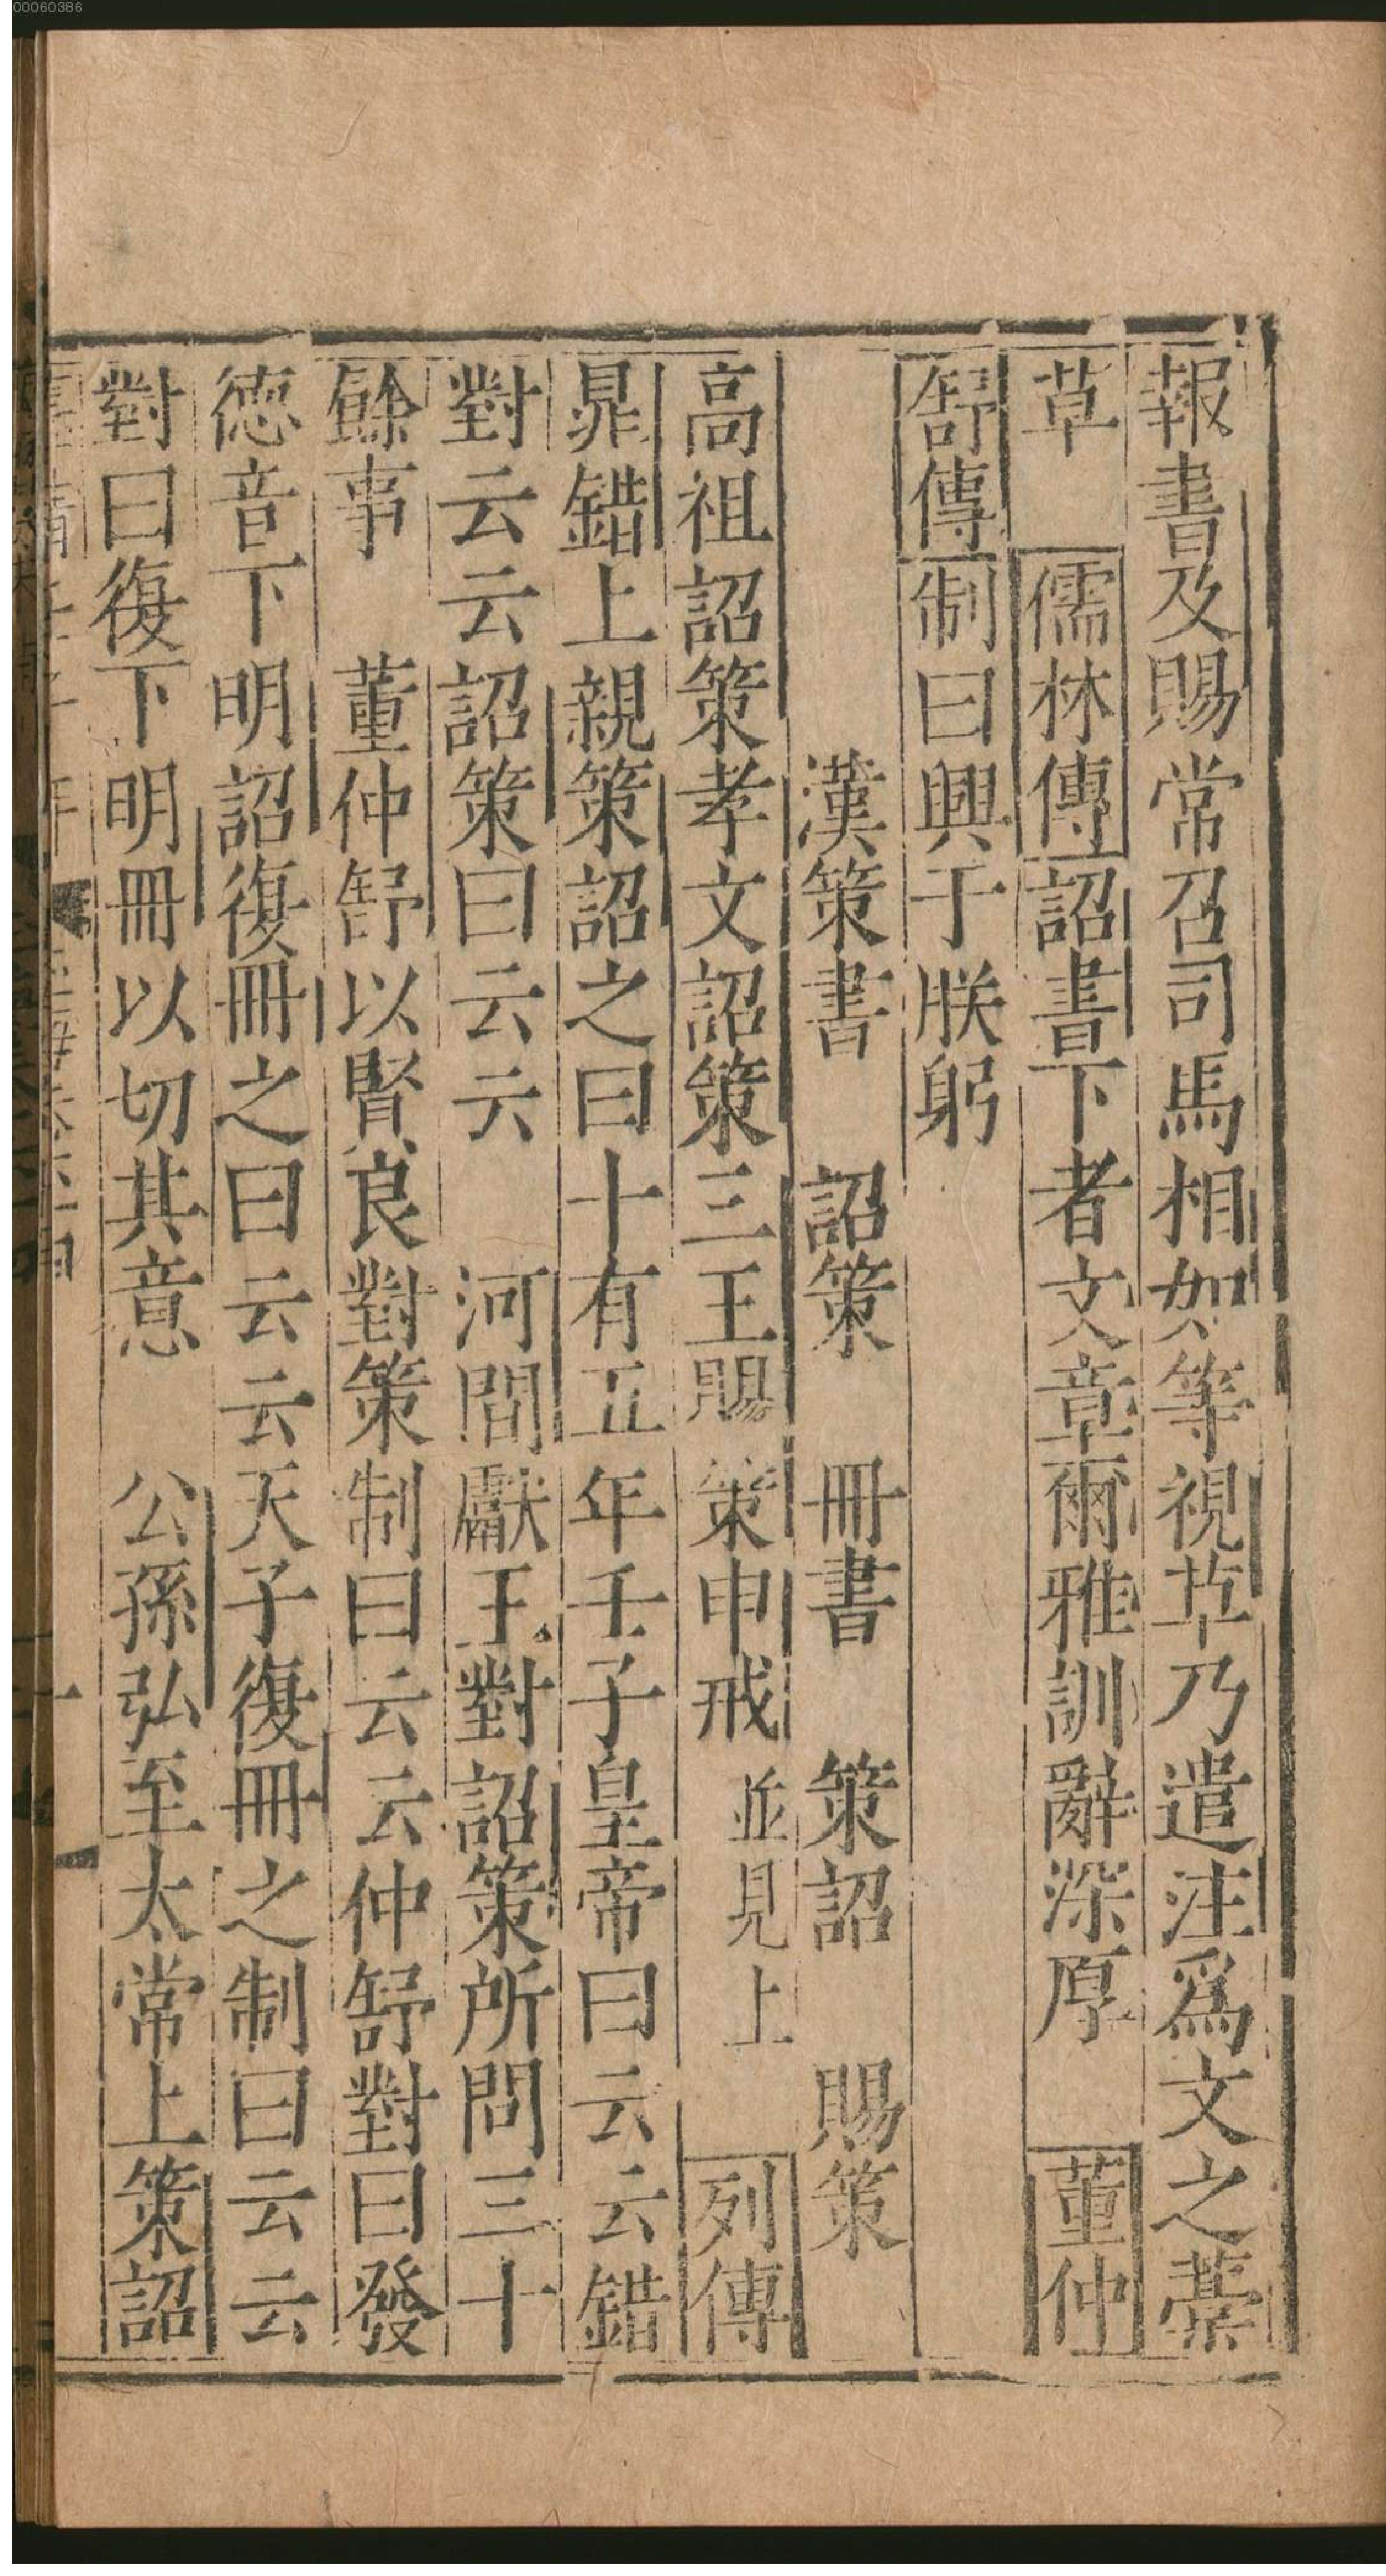 00060386
報書及賜常召司馬相如等視草乃遣注爲文之藁
草　儒林傳詔書下者文章爾雅訓辭深厚　董仲
舒傳制曰興于朕躬
漢策書　詔策　冊書　策詔　賜策
高祖詔策孝文詔策三王賜策申戒並見上　列傳
鼂錯上親策詔之曰十有五年壬子皇帝曰云云錯
對云云詔策曰云云　河間獻王對詔策所問三十
餘事　董仲舒以賢良對策制曰云云仲舒對曰發
德音下明詔復冊之曰云云天子復冊之制曰云云
對曰復下明冊以切其意　公孫弘至太常上策詔